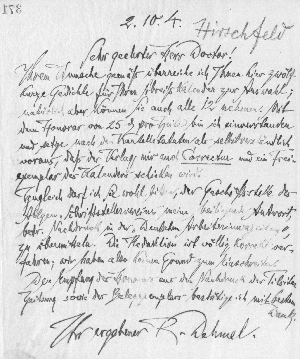 371
2. 10. 4.
Hirschfeld
Sehr geehrter Herr Doctor!
Ihrem Wunsche gemäß überreiche ich Ihnen hier zwölf
kurze Gedichte für Ihren Abreißkalender zur Auswahl;
natürlich aber können Sie auch alle 12 nehmen. Mit
dem Honorar von 25 M pro bin ich einverstanden
und setze, nach als selbstverständlich
voraus, daß der Verlag mir auch Correctur und ein Frei-
exemplar des Kalenders schicken wird.
Zugleich darf ich wohl bitten, der Geschäftsstelle des
Allgem. Schriftstellervereins meine Antwort
betr. Nachdruck in der
zu übermitteln. Die Redaktion ist völlig korrekt ver-
fahren; wir haben also keinen Grund zum Einschreiten.
Den Empfang des Honorars aus dem Nachdruck der Tilsiter
Zeitung sowie der bestätige ich mit bestem
Dank.
Ihr ergebener R. Dehmel.